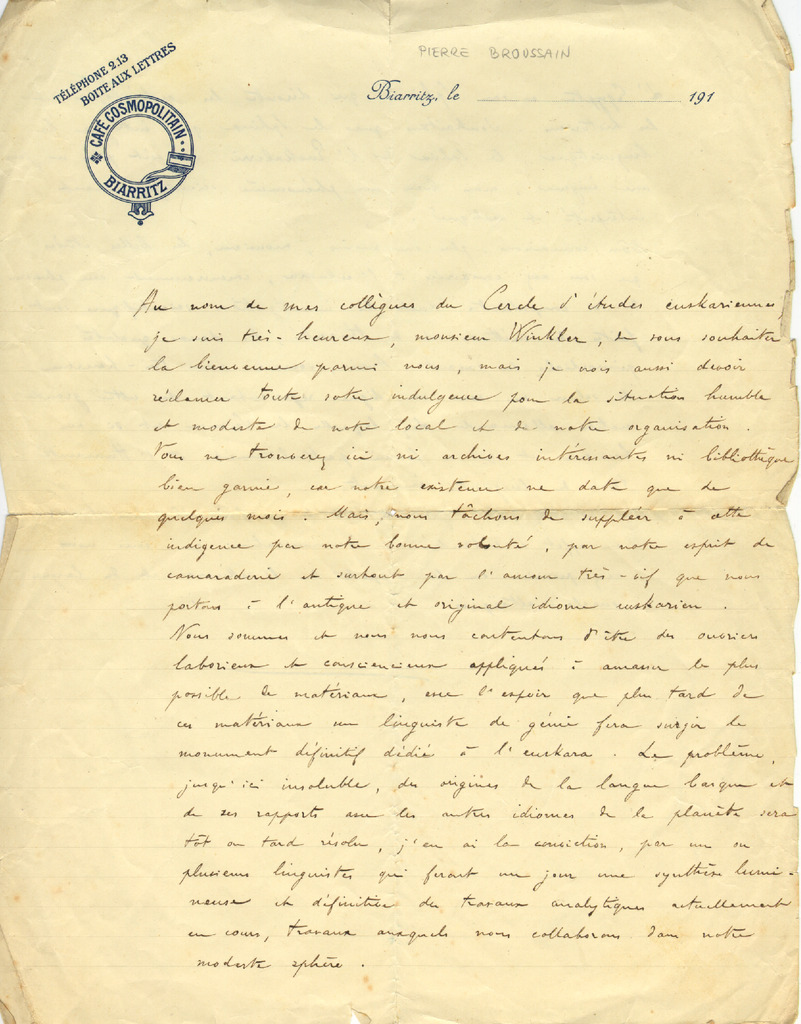 PIERRE BROUSSAIN
TÉLÉPHONE 2.13
BOITE AUX LETTRES
CAFÉ COSMOPOLITAIN
BIARRITZ
Biarritz, le 191
Au nom de mes collègues du Cercle d'études euskariennes,
je suis très-heureux, monsieur Winkler, de vous souhaiter
la bienvenue parmi nous, mais je crois aussi devoir
réclamer toute votre indulgence pour la situation humble
et modeste de notre local et de notre organisation.
Vous ne trouverez ici ni archives intéressantes ni bibliothèque
bien garnie, car notre existence ne date que de
quelques mois. Mais, nous tâchons de suppléer à cette
indigence par notre bonne volonté, par notre esprit de
camaraderie et surtout par l'amour très-vif que nous
portons à l'antique et original idiome euskarien.
Nous sommes et nous nous contentons d'être des ouvriers
laborieux et consciencieux appliqués à amasser le plus
possible de matériaux, avec l'espoir que plus tard de
ces matériaux un linguiste de génie fera surgir le
monument définitif dédié à l'euskara. Le problème,
jusqu'ici insoluble, des origines de la langue basque et
de ses rapports avec les autres idiomes de la planète sera
tôt ou tard résolu, j'en ai la conviction, par un ou
plusieurs linguistes qui feront un jour une synthèse lumi-
neuse et définitive des travaux analytiques actuellement
en cours, travaux auxquels nous collaborons dans notre
modeste sphère.